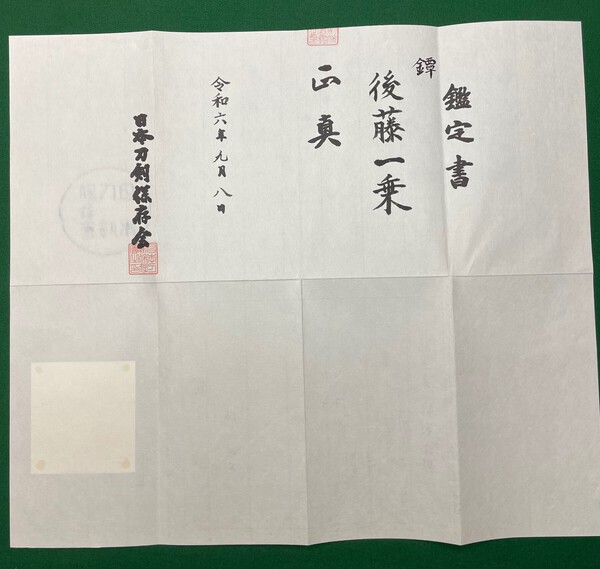 鑑定書
鐔
後藤一乗
正真
令和六年九月八日
日本刀剣保存会